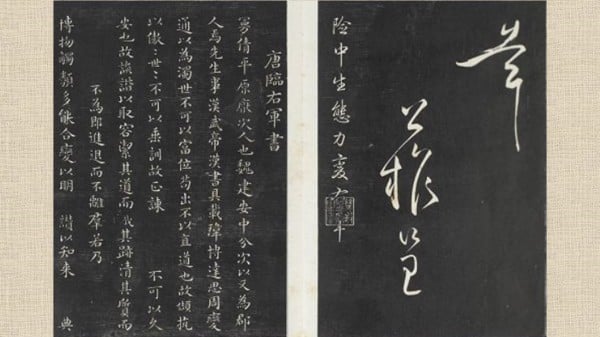 公權呈
险中生態力變
唐臨右軍書
曼倩平原厭次人也魏建安中分次以又為郡
人焉先生事漢武帝漢書具載瑋博達思周變
通以為濁世不可以富位苟出不以直道也故頡抗
以傲世〻不可以垂訓故正諫 不可以久
安也故詼諧以取容潔其道而穢其跡清其質而
不為邪進退而不離群若乃
博物觸類多能合變以明 讚以知來 典